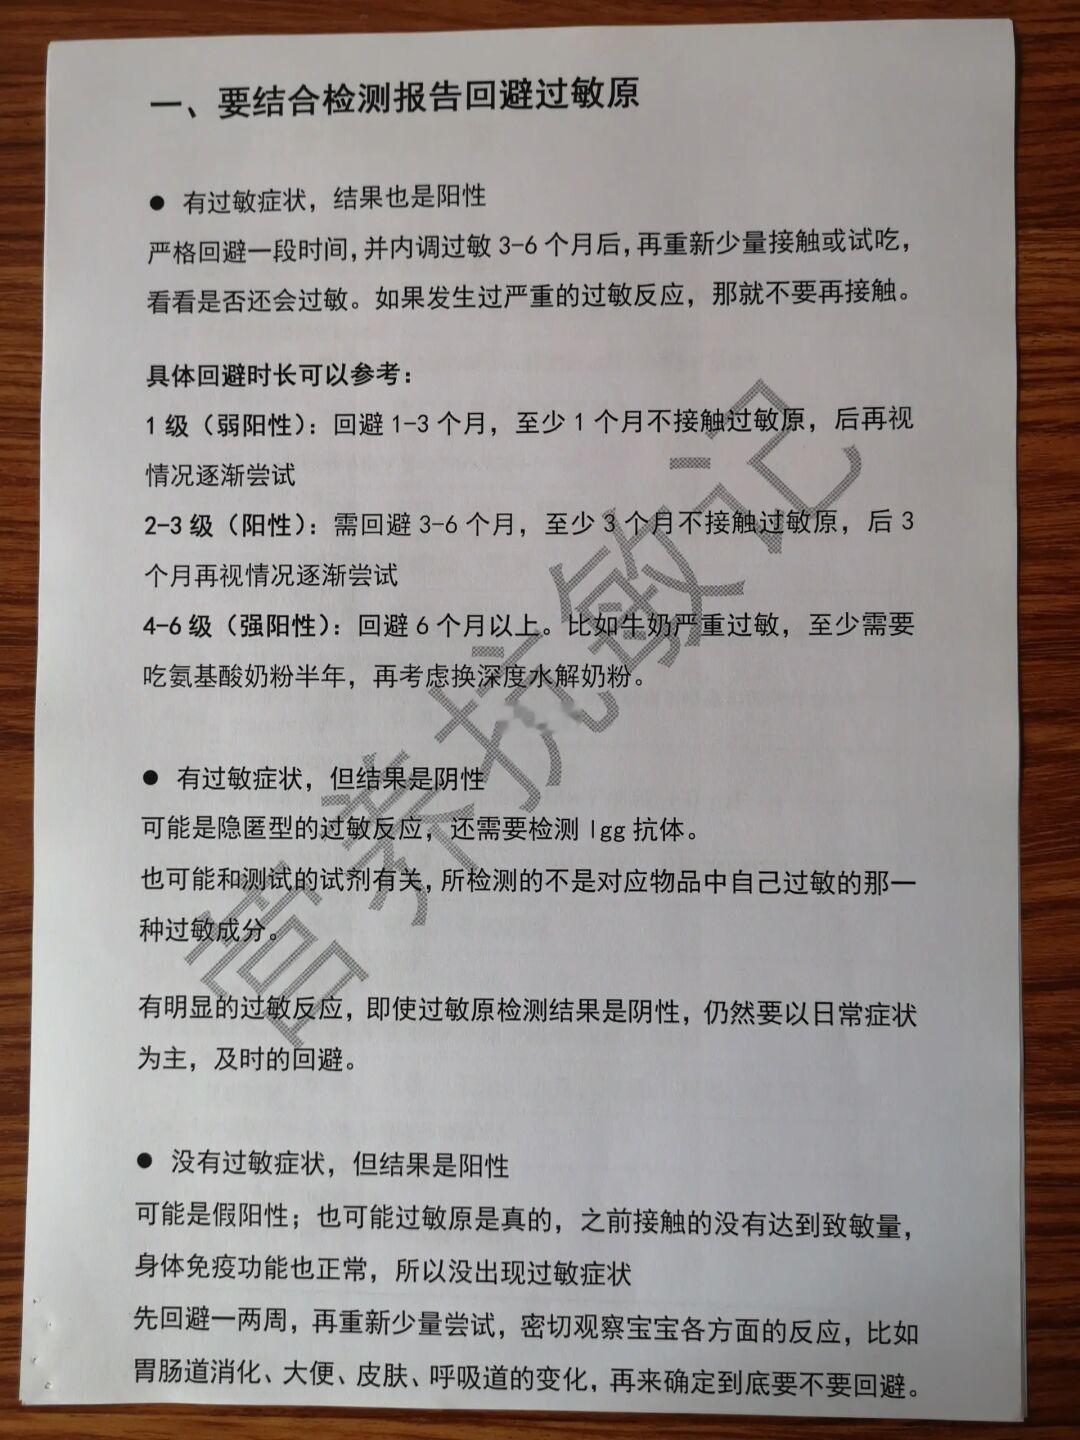 一、要结合检测报告回避过敏原
● 有过敏症状，结果也是阳性
严格回避一段时间，并内调过敏3-6个月后，再重新少量接触或试吃，
看看是否还会过敏。如果发生过严重的过敏反应，那就不要再接触。
具体回避时长可以参考：
1级（弱阳性）：回避1-3个月，至少1个月不接触过敏原，后再视
情况逐渐尝试
2-3级（阳性）：需回避3-6个月，至少3个月不接触过敏原，后3
个月再视情况逐渐尝试
4-6级（强阳性）：回避6个月以上。比如牛奶严重过敏，至少需要
吃氨基酸奶粉半年，再考虑换深度水解奶粉。
● 有过敏症状，但结果是阴性
可能是隐匿型的过敏反应，还需要检测Igg抗体。
也可能和测试的试剂有关，所检测的不是对应物品中自己过敏的那一
种过敏成分。
有明显的过敏反应，即使过敏原检测结果是阴性，仍然要以日常症状
为主，及时的回避。
● 没有过敏症状，但结果是阳性
可能是假阳性；也可能过敏原是真的，之前接触的没有达到致敏量，
身体免疫功能也正常，所以没出现过敏症状
先回避一两周，再重新少量尝试，密切观察宝宝各方面的反应，比如
胃肠道消化、大便、皮肤、呼吸道的变化，再来确定到底要不要回避。
营养抗敏记